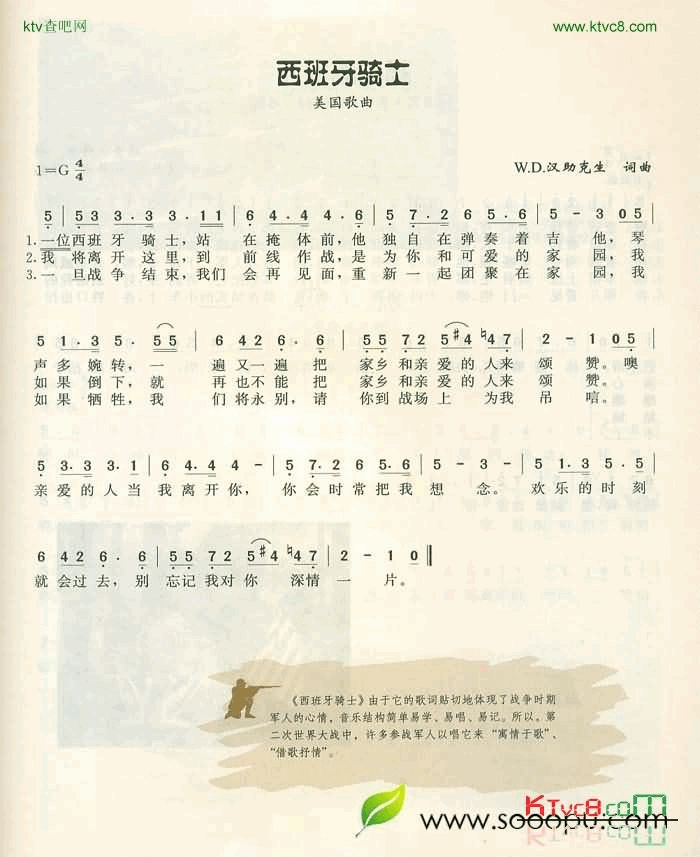 ktv查吧网
www.ktvc8.com
西班牙骑士
美国歌曲
1=G 4/4
W.D.汉助克生 词曲
5 | 53 3·3 3·11 | 6·4·4 4·6 | 5 7·2 6·5 5·6 | 5 - 3 05 |
1.一位西班牙 骑士,站 在掩体前,他 独自在弹奏着吉他,琴
2.我 将离开 这里,到 前线作战,是 为你和可爱的家园,我
3.一旦战争 结束,我们 会再见面,重新一起团聚在家园,我
5 1·3 5· 55 | 6 426·6 | 55 72 5#4 ♮47 | 2 - 1 05 |
声多婉转,一 遍又一遍 把 家乡和亲爱的人来 颂 赞。噢
如果倒下,就 再也不能 把 家乡和亲爱的人来 颂 赞。
如果牺牲,我 们将永别,请 你到战场上 为我 吊 唁。
5 3·3 3·1 | 6·4 4 - | 5 7·2 6 5·6 | 5 - 3 - | 5 1·3 5·5 |
亲爱的人当 我离开你, 你会时常把我 想 念。 欢乐的时刻
6 426·6 | 55 72 5#4 ♮47 | 2 - 1 0 ‖
就会过去,别 忘记我对你 深情 一 片。
《西班牙骑士》由于它的歌词贴切地体现了战争时期
军人的心情,音乐结构简单易学、易唱、易记。所以,第
二次世界大战中,许多参战军人以唱它来“寓情于歌”、
“借歌抒情”。
KTvc8.com
www.sooopu.com